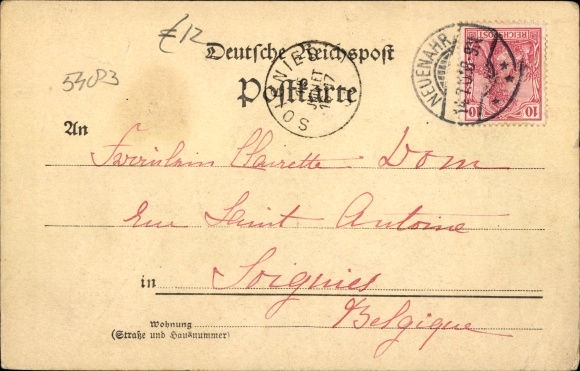 £12
Deutsche Reichspost
Postkarte
54083
NEUENAHR
REICHSPOST
10 10
SOIGNIES
An
Fräulein Clairette Dom
Rue Saint Antoine
in Soignies
Belgique
Wohnung
(Straße und Hausnummer)